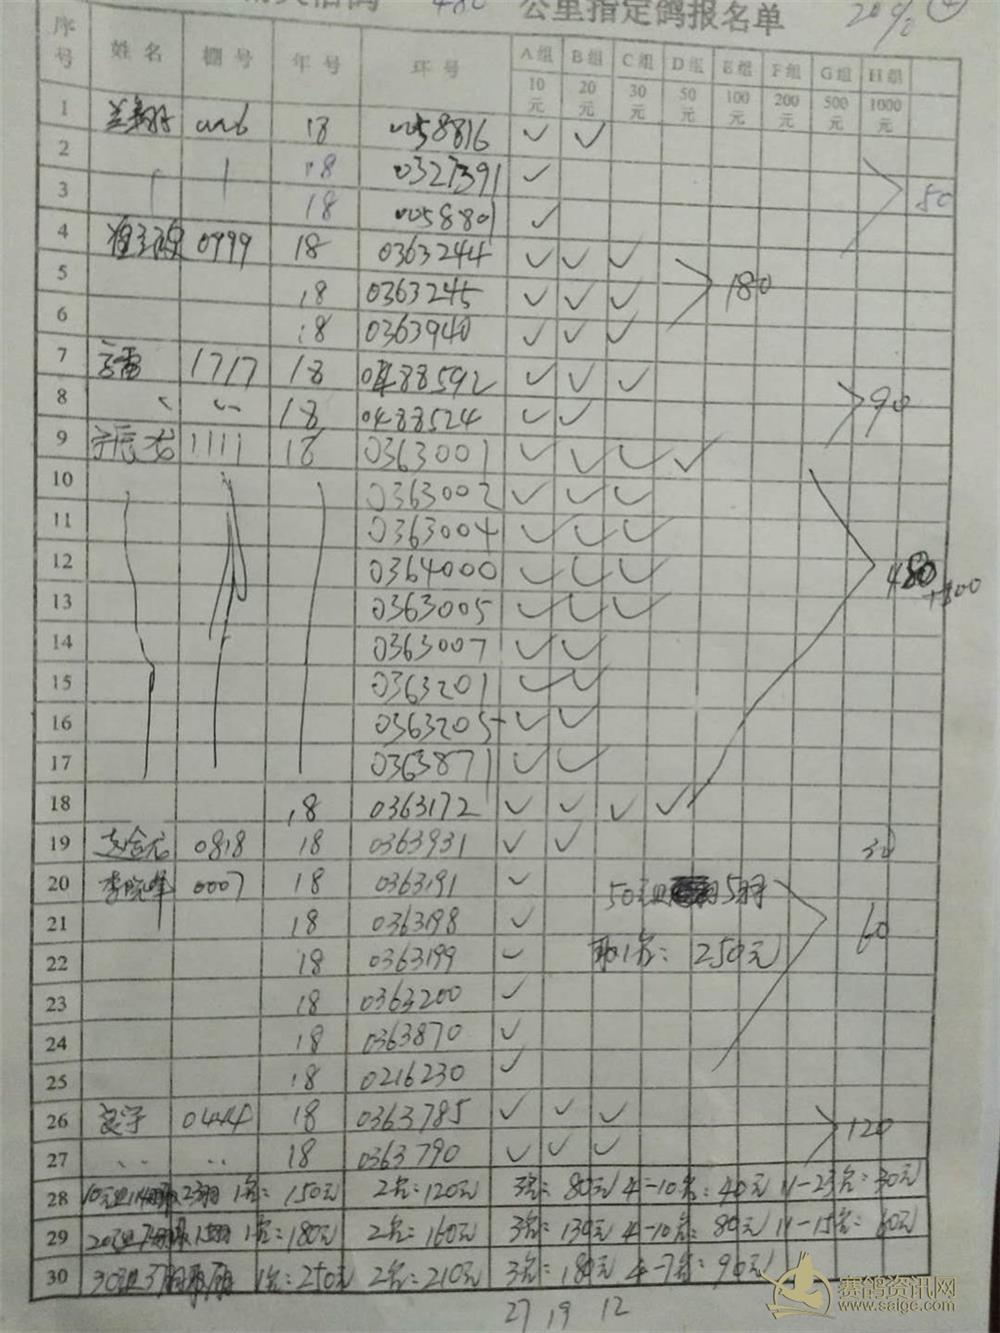 480 公里指定鸽报名单 20%
序号 姓名 棚号 年号 环号 A组 B组 C组 D组 E组 F组 G组 H组
10元 20元 30元 50元 100元 200元 500元 1000元
1 18 0058816 ✓ ✓
2 18 0327391 ✓ 50
3 18 0058801 ✓
4 0999 18 0363244 ✓ ✓ ✓
5 18 0363245 ✓ ✓ ✓ 180
6 18 0363940 ✓ ✓ ✓
7 1717 18 0488592 ✓ ✓ ✓
8 18 0488524 ✓ ✓ 90
9 1111 18 0363001 ✓ ✓ ✓ ✓
10 0363002 ✓ ✓ ✓
11 0363004 ✓ ✓ ✓
12 0364000 ✓ ✓ ✓ 480
13 0363005 ✓ ✓ ✓
14 0363007 ✓ ✓
15 0363201 ✓ ✓
16 0363205 ✓ ✓
17 0363871 ✓ ✓
18 18 0363172 ✓ ✓ ✓ ✓
19 0818 18 0363931 ✓ ✓ 30
20 李晓峰 0007 18 0363191 ✓ 50元组 5羽
21 18 0363198 ✓ 60
22 18 0363199 ✓ 取1名: 250元
23 18 0363200 ✓
24 18 0363870 ✓
25 18 0216230 ✓
26 0444 18 0363785 ✓ ✓ ✓ 120
27 18 0363790 ✓ ✓ ✓
28 10元组 23羽 1名: 150元 2名: 120元 3名: 80元 4-10名: 40元 11-23名: 30元
29 20元组 15羽 1名: 180元 2名: 160元 3名: 130元 4-10名: 80元 11-15名: 60元
30 30元组 1名: 250元 2名: 210元 3名: 180元 4-7名: 90元
27 19 12
赛鸽资讯网
www.saigc.com